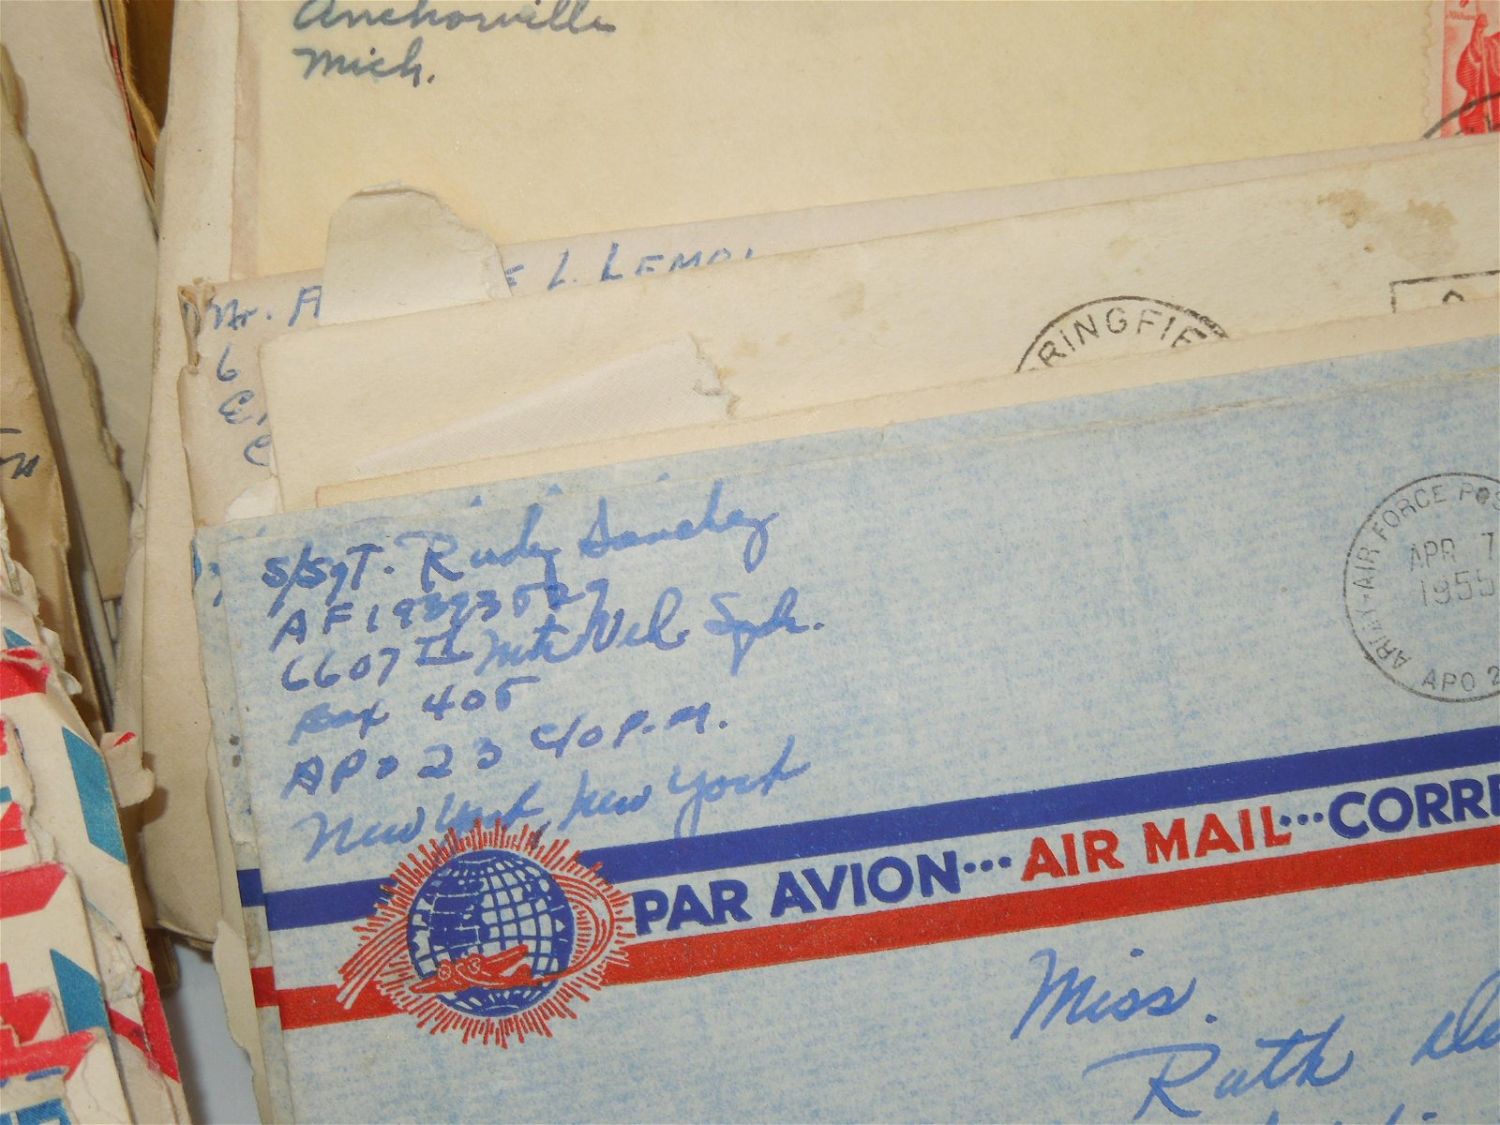 Anchorville
Mich.
Mr. A
E L. LEMO
6
RINGFIE
S/Sgt. Rudy Sanchez
6607 Th
Box 405
APO 23 C/O P.M.
New York, New York
ARMY-AIR FORCE POS
APR 7
1955
APO 2
PAR AVION···AIR MAIL···CORRE
Miss.
Ruth